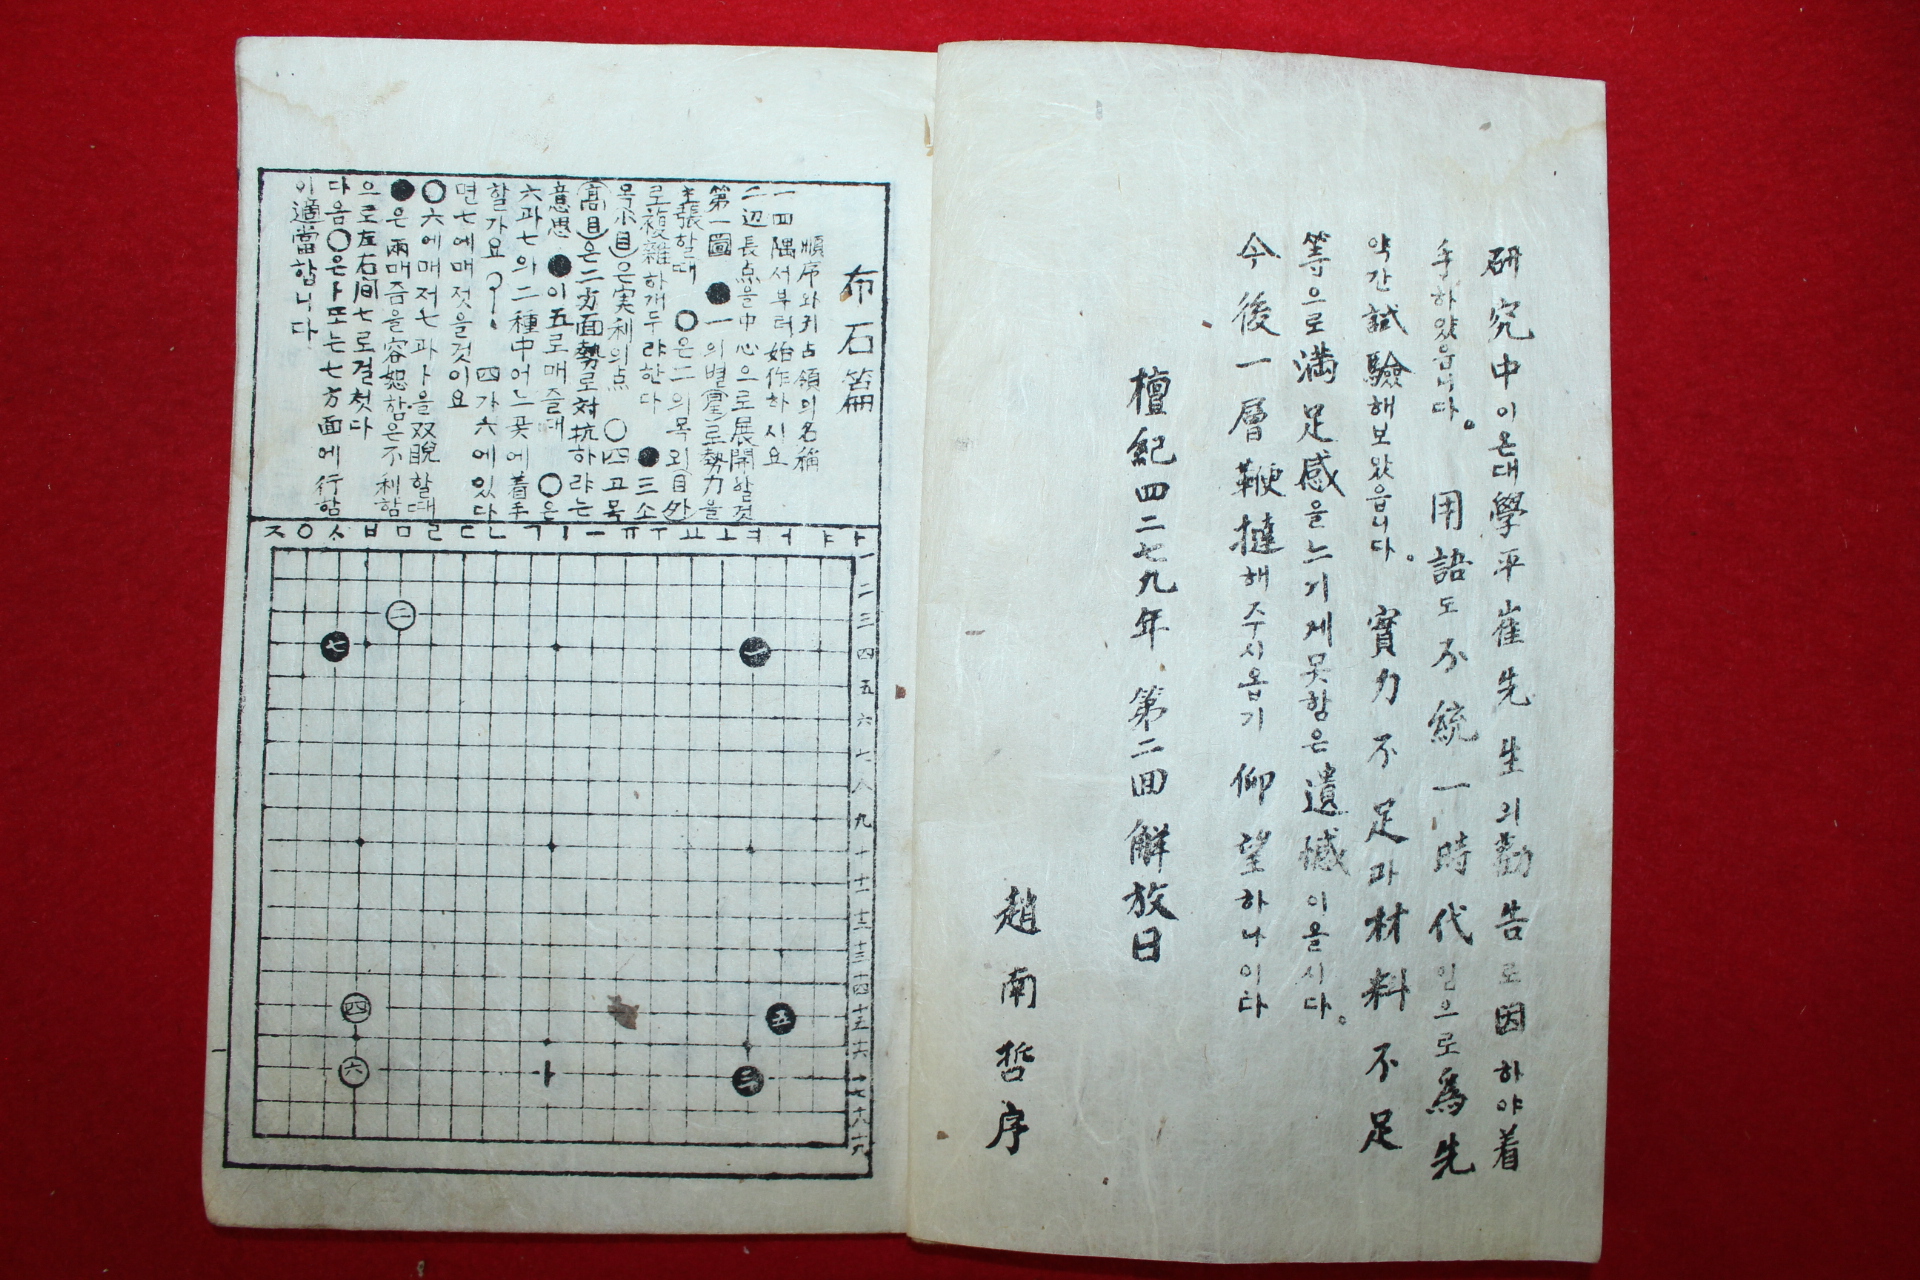 研究中이온대學平崔先生의勸告로因하야着
手하얏읍니다。用語도不統一時代임으로爲先
약간試驗해보왔읍니다。實力不足과材料不足
等으로満足感을느기게못함은遺憾이올시다。
今後一層鞭撻해주시옵기仰望하나이다
檀紀四二七九年 第二回解放日
趙南哲序
布石篇
順序와귀占領의名稱
一四隅서부터始作하시요
二辺長点을中心으로展開할것
第一圖 ●一의별(星)로勢力을
主張할때 ○은二의목외(目外)
로複雜하개두랴한다 ●三소
목(小目)은実利의点 ○四고목
(高目)은二方面勢로対抗하랴는
意思 ●이五로매즐대 ○은
六과七의二種中어느꼿에着手
할가요?. 四가六에있다
면七에매젓을것이요
○六에매저七과八을双睨할때
●은兩매즘을容恕함은不利함
으로左右間七로결첫다
다음○은八또는七方面에行함
이適當합니다
ㅈㅇㅅㅂㅁㄹㄷㄴㄱㅣㅡㅠㅜㅛㅗㅕㅓㅑㅏ
一
二
三
四
五
六
七
八
九
十
十一
十二
十三
十四
十五
十六
十七
十八
十九
二
七
一
四
五
六
三